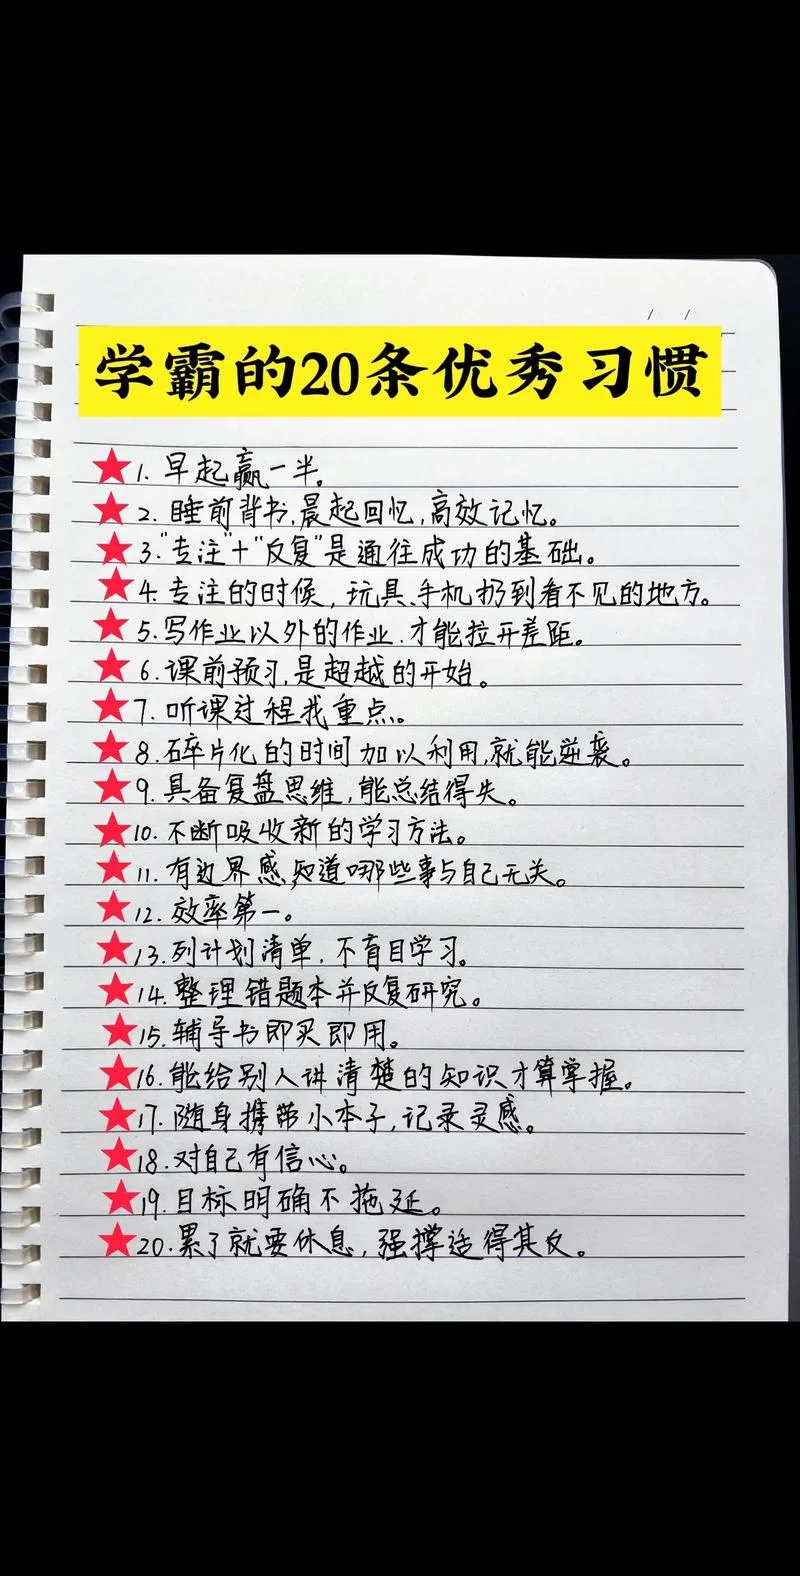 / /
学霸的20条优秀习惯
1. 早起赢一半。
2. 睡前背书,晨起回忆,高效记忆。
3."专注"+"反复"是通往成功的基础。
4. 专注的时候,玩具、手机扔到看不见的地方。
5.写作业以外的作业.才能拉开差距。
6.课前预习,是超越的开始。
7.听课过程找重点。
8.碎片化的时间加以利用,就能逆袭。
9.具备复盘思维,能总结得失。
10.不断吸收新的学习方法。
11.有边界感,知道哪些事与自己无关。
12.效率第一。
13.列计划清单,不盲目学习。
14.整理错题本并反复研究。
15.辅导书即买即用。
16.能给别人讲清楚的知识才算掌握。
17.随身携带小本子,记录灵感。
18.对自己有信心。
19.目标明确不拖延。
20.累了就要休息,强撑适得其反。